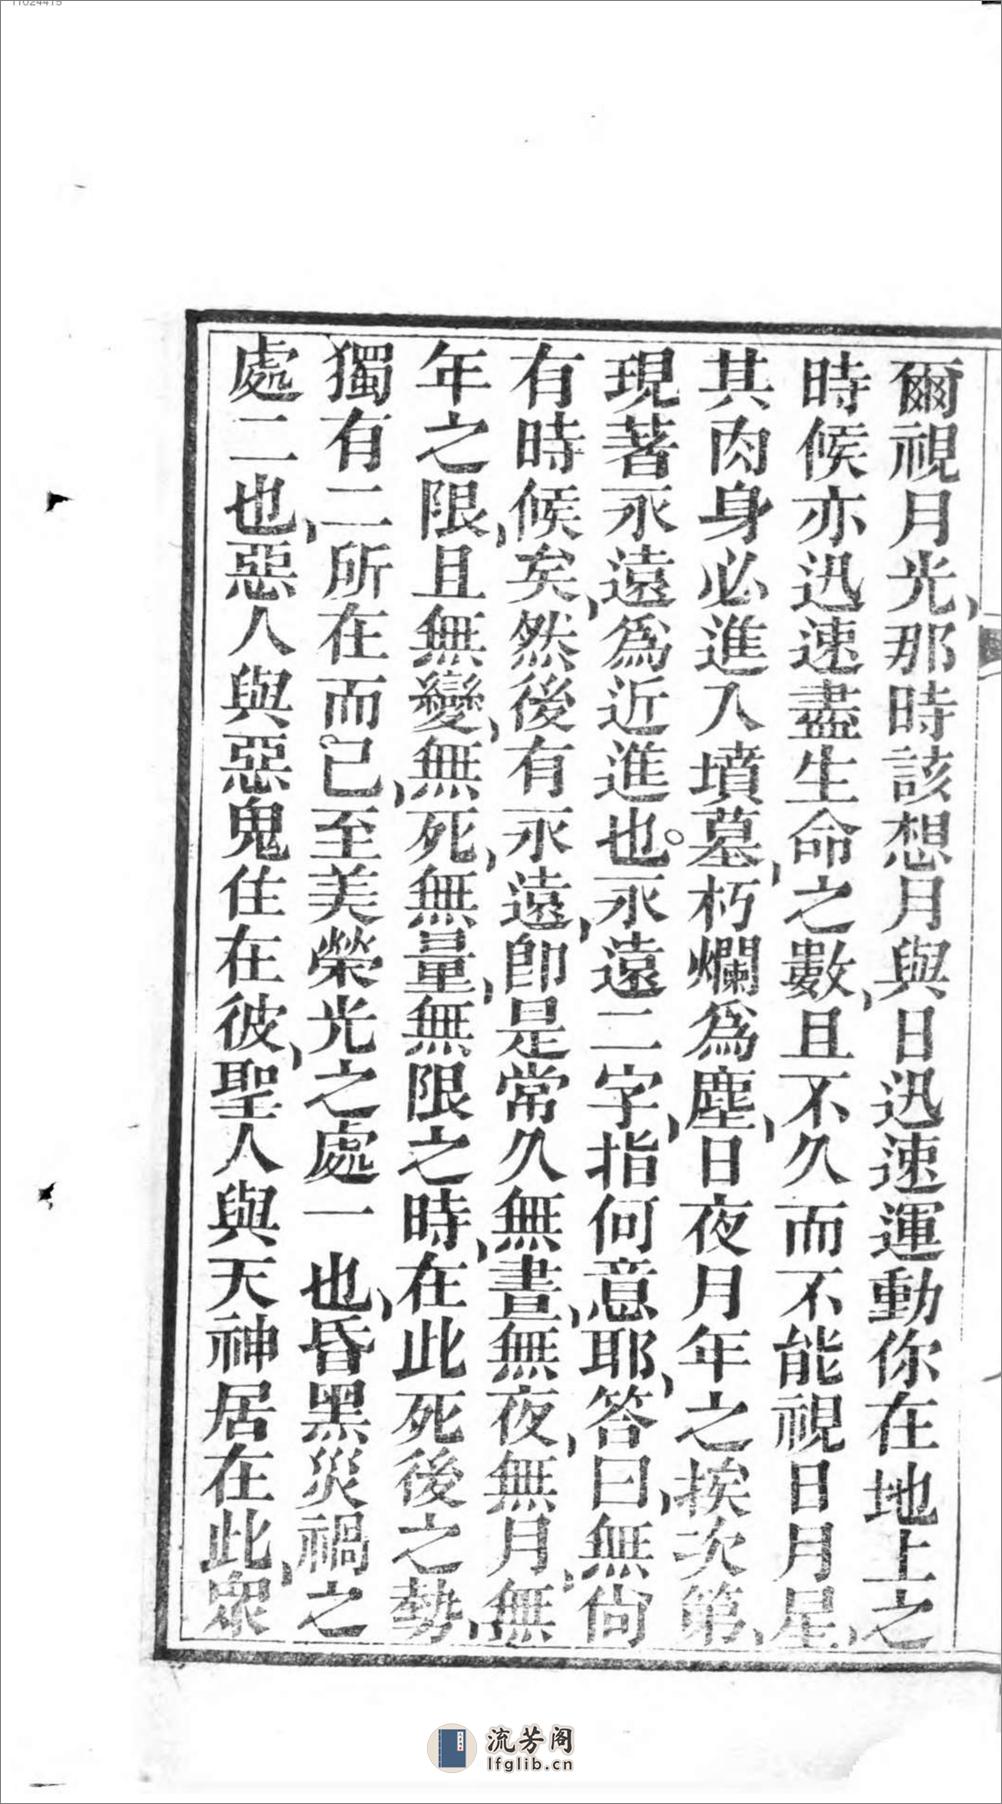 爾視月光、那時該想月與日迅速運動你在地上之
時候亦迅速盡生命之數、且不久而不能視日月星、
其肉身必進入墳墓、朽爛爲塵、日夜月年之挨次第、
現著永遠爲近進也。永遠二字、指何意耶、答曰、無尙
有時候矣、然後有永遠、卽是常久無晝、無夜、無月、無
年之限、且無變、無死、無量、無限之時、在此死後之勢、
獨有二所在而已。至美榮光之處一也、昏黑災禍之
處二也、惡人與惡鬼住在彼、聖人與天神居在此、衆
流芳阁
lfglib.cn